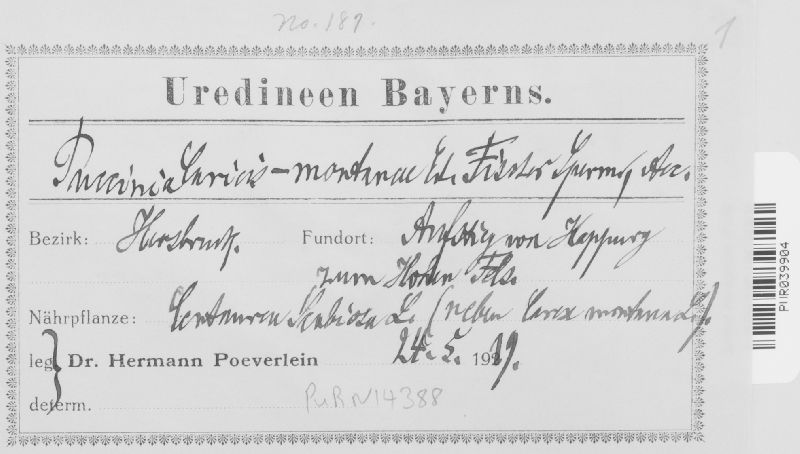 No. 189.
1
Uredineen Bayerns.
Puccinia Caricis-montanae Ed. Fischer Sperm., Aec.
Bezirk: Hersbruck. Fundort: Aufstieg von Happurg
zum Hohen Fels.
Nährpflanze: Centaurea Scabiosa L. (neben Carex montana L.).
leg. Dr. Hermann Poeverlein 24. 5. 1919.
determ.
PuR N14388
PUR039904